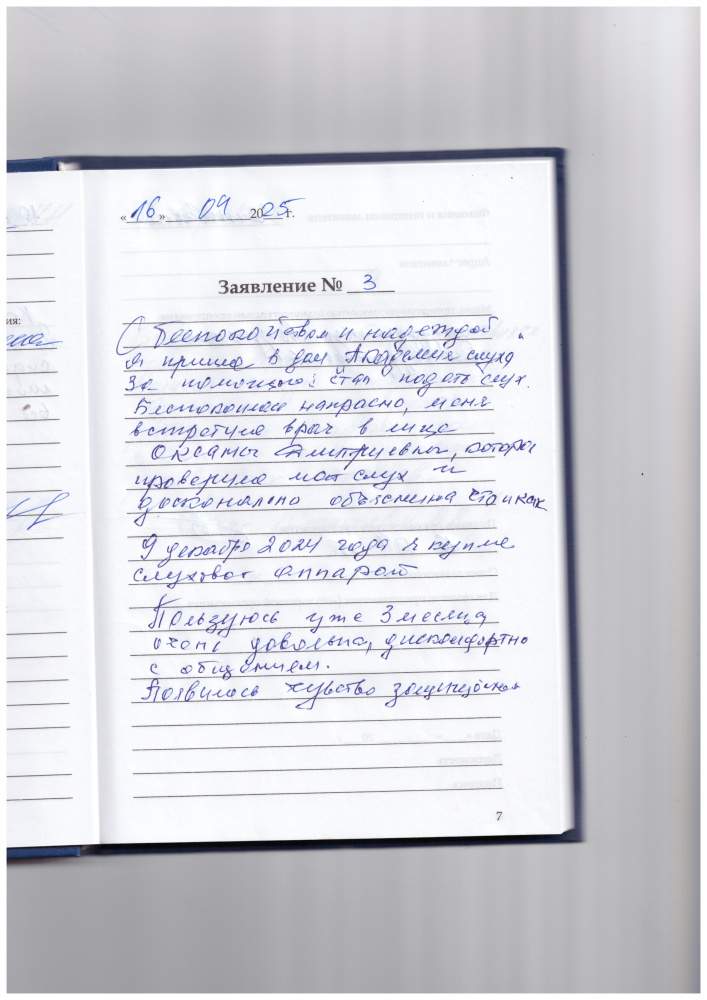 «16» 04 2025 г.
Заявление № 3
С беспокойством и надеждой
я пришла в дом Академия слуха
за помощью: стал подать слух.
Беспокоилась напрасно, меня
встретила врач в лице
Оксаны Дмитриевны, котора
проверила мой слух и
досконально объяснила что и как
9 декабря 2024 года я купила
слуховой аппарат
Пользуюсь уже 3 месяца
очень довольна, дискомфортно
с общением.
Появилось чувство
7